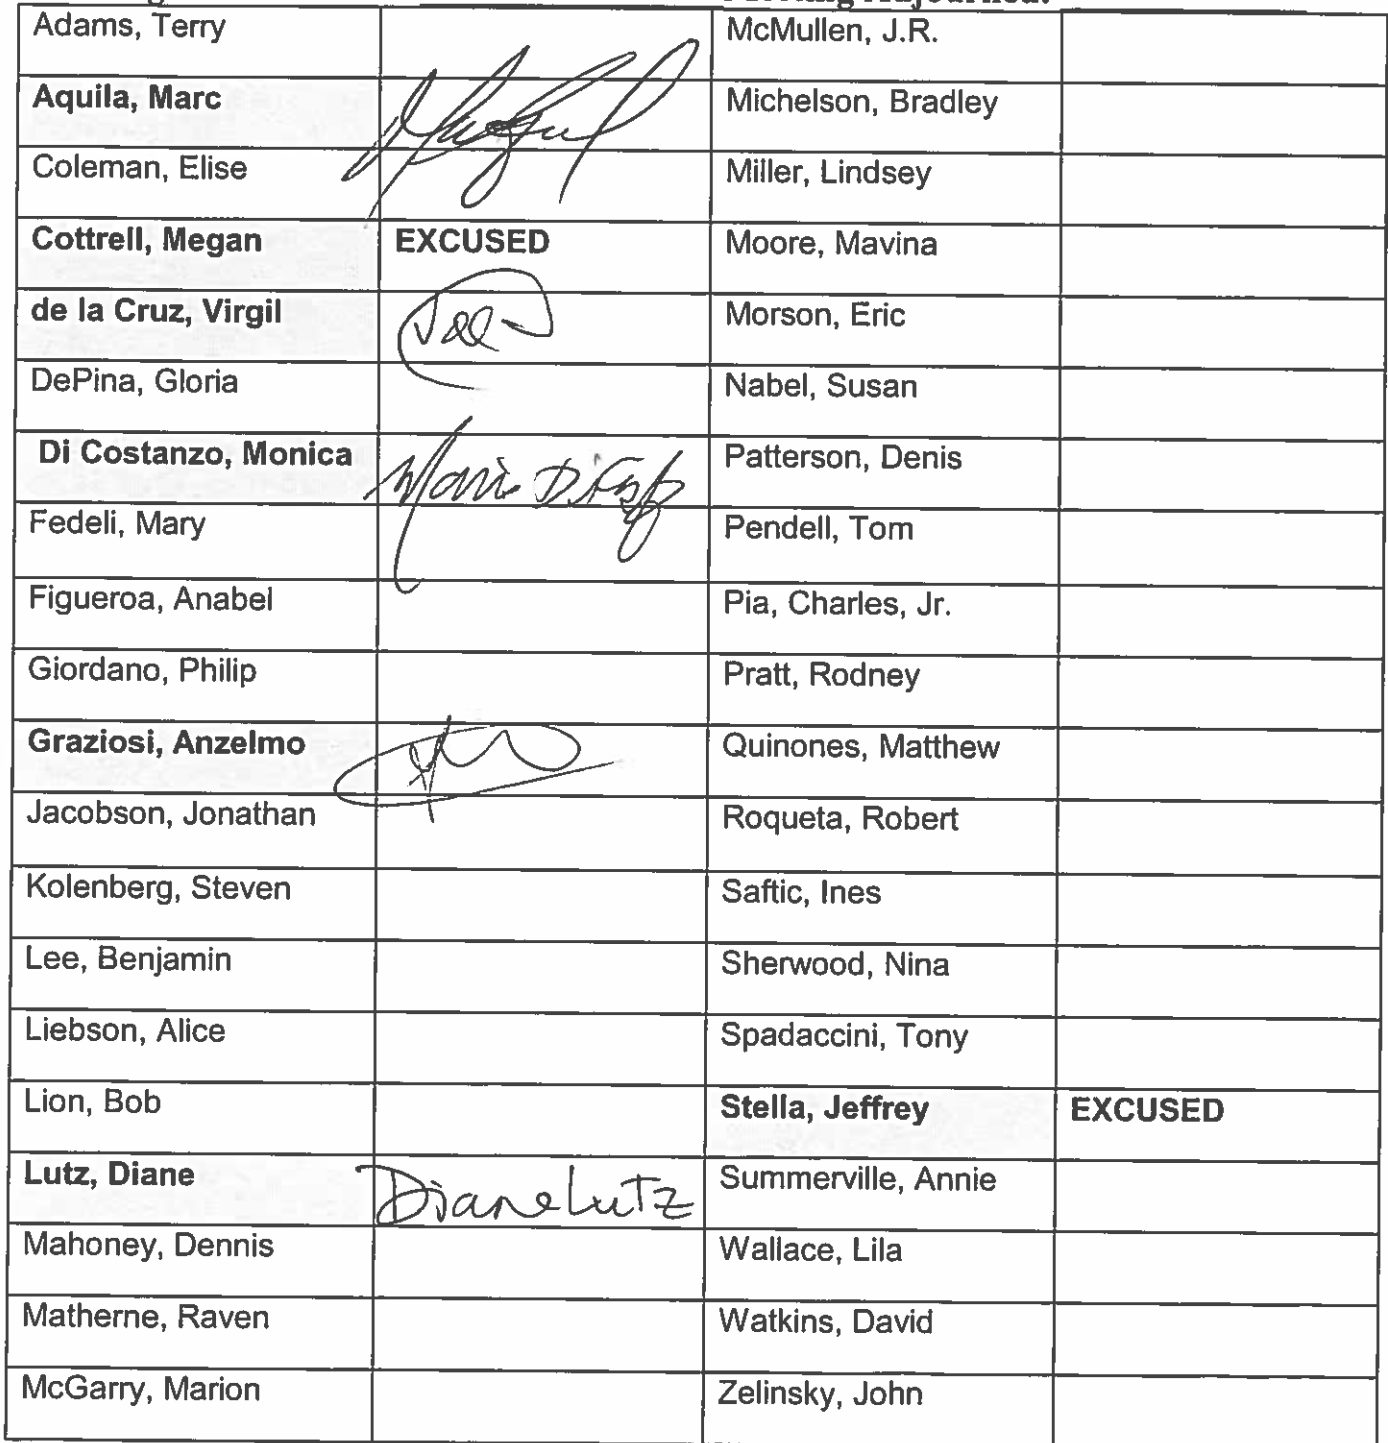 Meeting Adjourned:
Adams, Terry McMullen, J.R.
Aquila, Marc Michelson, Bradley
Coleman, Elise Miller, Lindsey
Cottrell, Megan EXCUSED Moore, Mavina
de la Cruz, Virgil Morson, Eric
DePina, Gloria Nabel, Susan
Di Costanzo, Monica Patterson, Denis
Fedeli, Mary Pendell, Tom
Figueroa, Anabel Pia, Charles, Jr.
Giordano, Philip Pratt, Rodney
Graziosi, Anzelmo Quinones, Matthew
Jacobson, Jonathan Roqueta, Robert
Kolenberg, Steven Saftic, Ines
Lee, Benjamin Sherwood, Nina
Liebson, Alice Spadaccini, Tony
Lion, Bob Stella, Jeffrey EXCUSED
Lutz, Diane Diane Lutz Summerville, Annie
Mahoney, Dennis Wallace, Lila
Matherne, Raven Watkins, David
McGarry, Marion Zelinsky, John